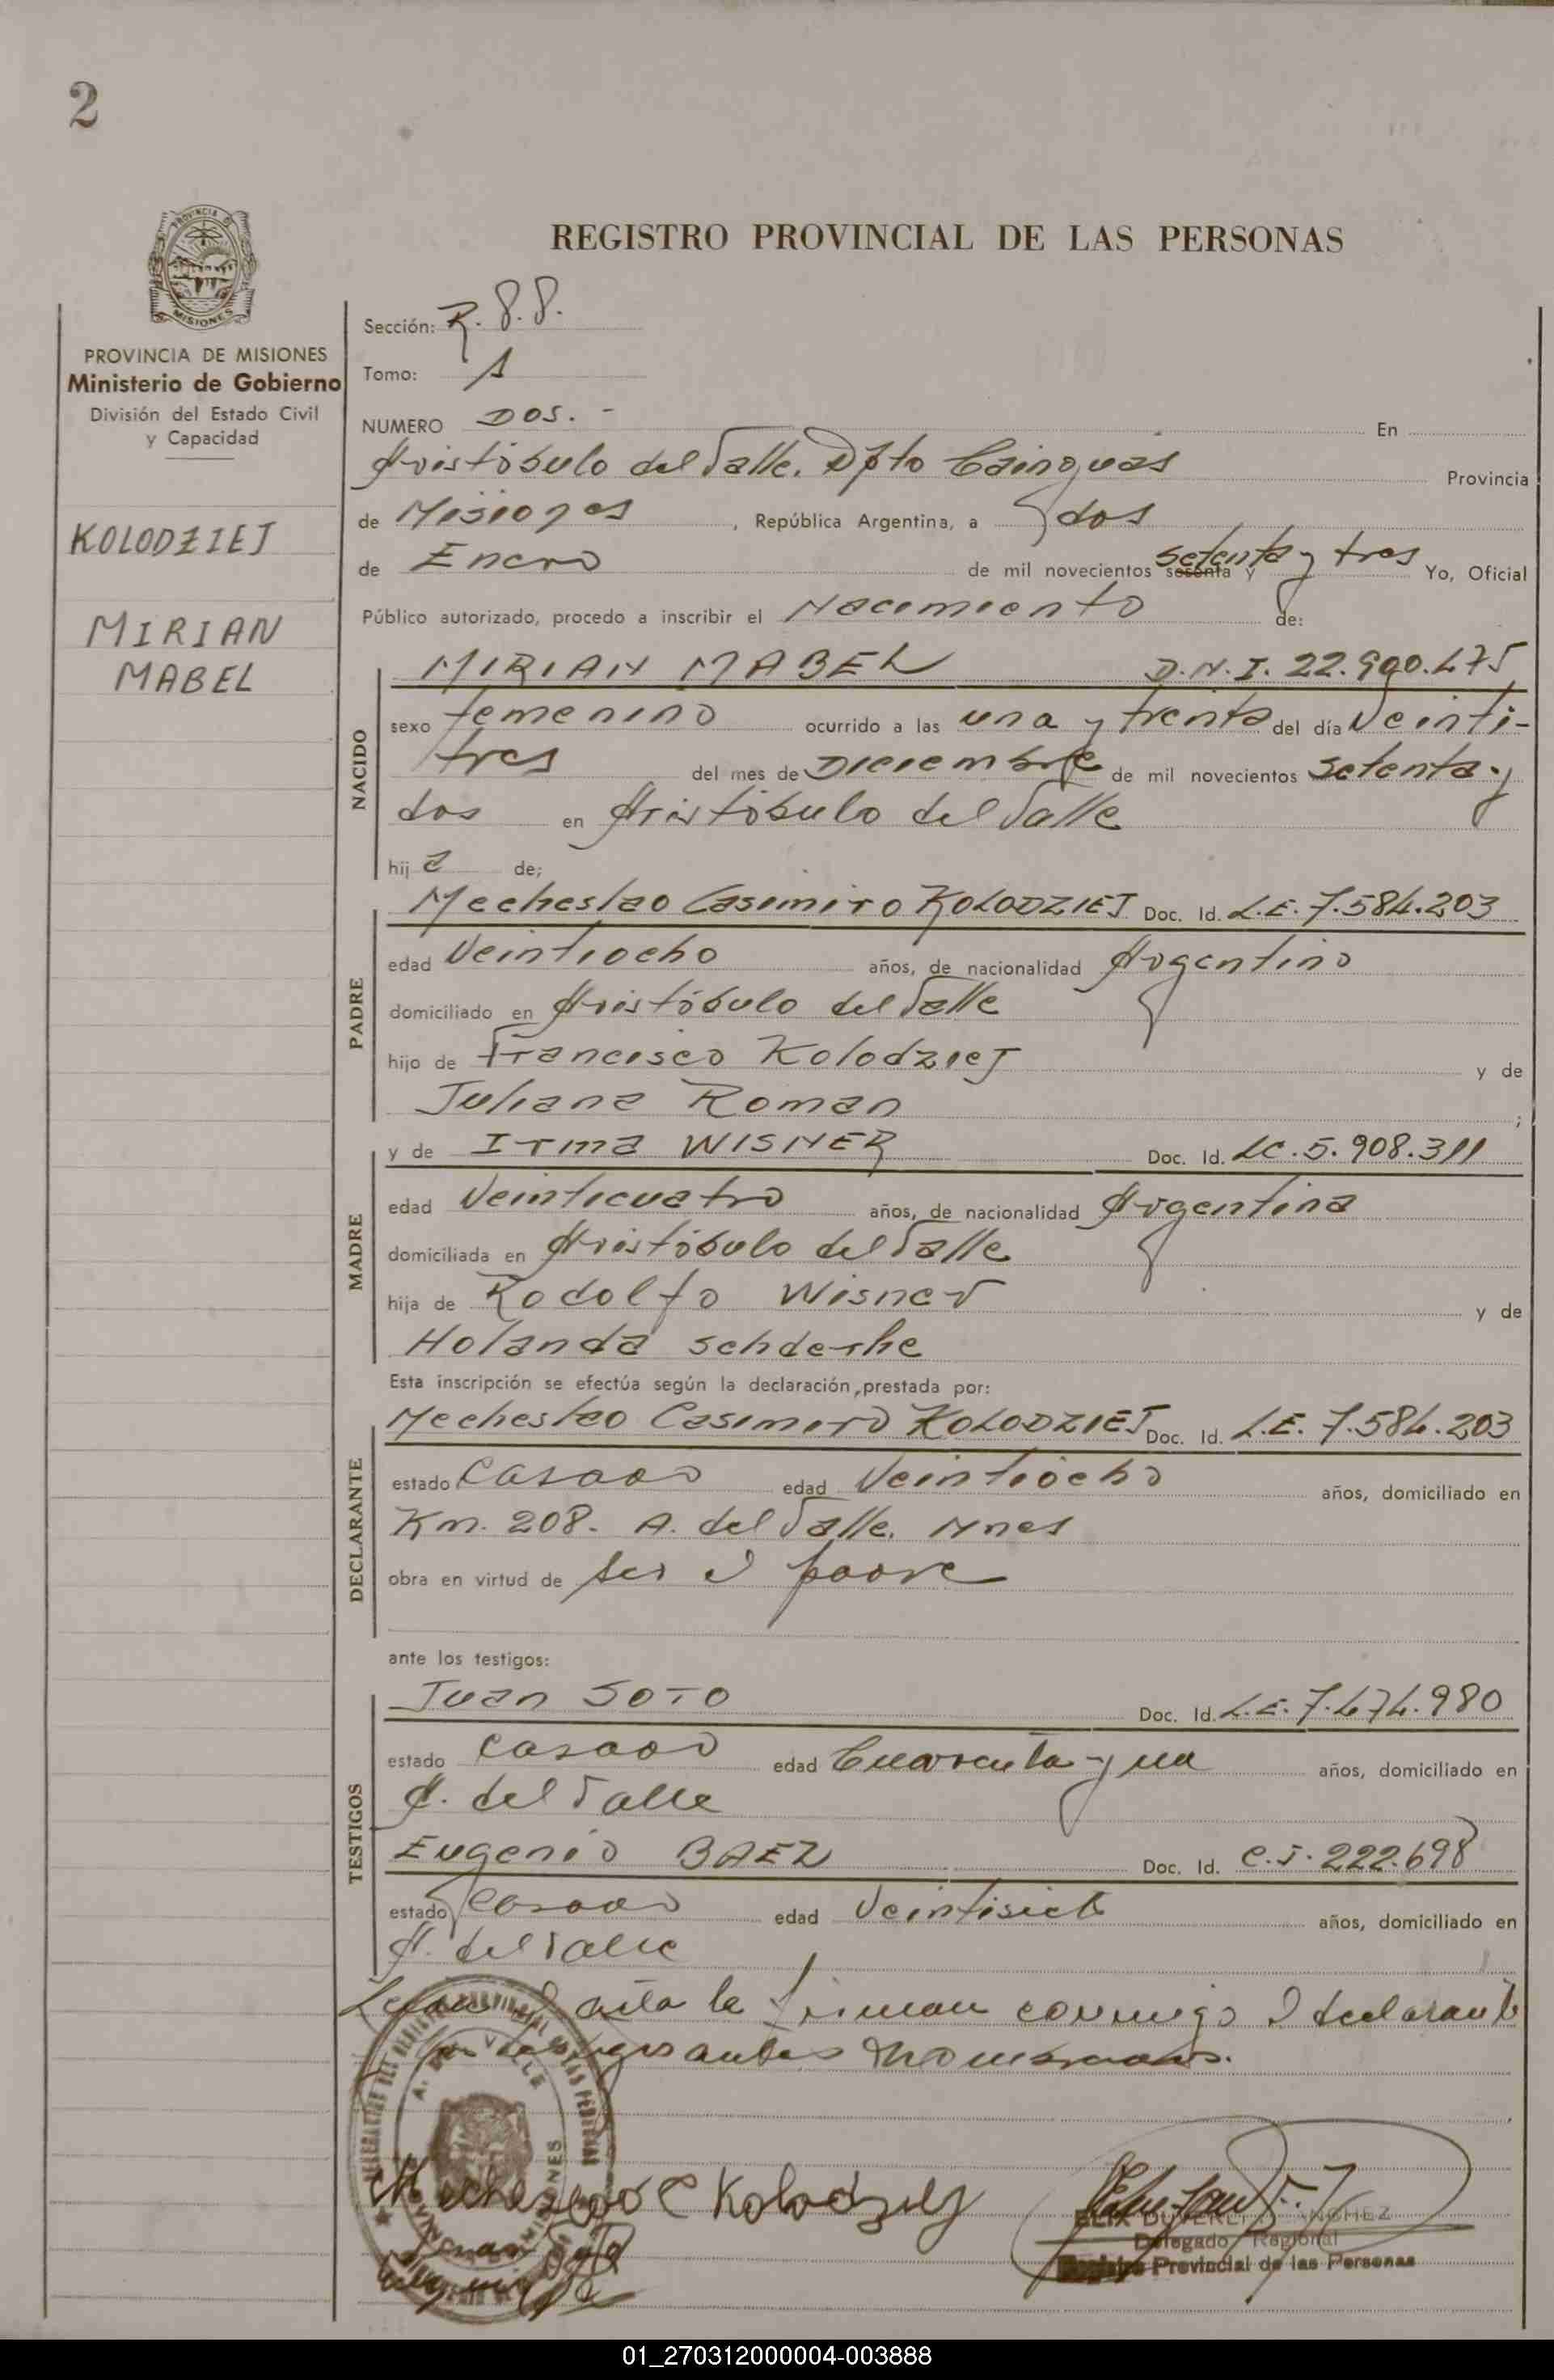 2
REGISTRO PROVINCIAL DE LAS PERSONAS
PROVINCIA DE MISIONES
Ministerio de Gobierno
División del Estado Civil
y Capacidad
KOLODZIEJ
MIRIAN
MABEL
Sección: R. 8.8.
Tomo: 1
NUMERO DOS. - En
Aristóbulo del Valle. Dpto Cainguas Provincia
de Misiones, República Argentina, a dos
de Enero de mil novecientos sesenta y setenta y tres Yo, Oficial
Público autorizado, procedo a inscribir el Nacimiento de:
NACIDO
MIRIAN MABEL D.N.I. 22.900.475
sexo femenino ocurrido a las una y treinta del día Veinti-
tres del mes de Diciembre de mil novecientos setenta y
dos en Aristóbulo del Valle
hij a de;
PADRE
Mecheslao Casimiro KOLODZIEJ Doc. Id. L.E. 7.584.203
edad Veintiocho años, de nacionalidad Argentino
domiciliado en Aristóbulo del Valle
hijo de Francisco Kolodziej y de
Juliana Roman ;
MADRE
y de Irma WISNER Doc. Id. LC.5.908.311
edad Veinticuatro años, de nacionalidad Argentina
domiciliada en Aristóbulo del Valle
hija de Rodolfo Wisner y de
Holanda
Esta inscripción se efectúa según la declaración prestada por:
DECLARANTE
Mecheslao Casimiro KOLODZIEJ Doc. Id. L.E. 7.584.203
estado Casado edad Veintiocho años, domiciliado en
Km. 208. A. del Valle. Mnes
obra en virtud de ser el padre
ante los testigos:
TESTIGOS
Juan SOTO Doc. Id. L.E. 7.474.980
estado Casado edad Cuarenta y un años, domiciliado en
A. del Valle
Eugenio BAEZ Doc. Id. C.I. 222.698
estado Casado edad Veintisiete años, domiciliado en
A. del Valle
acta la firman conmigo el declarante
antes nombrados.
Mecheslao C Kolodziej
FELIX SANCHEZ
Delegado Regional
Registro Provincial de las Personas
01_270312000004-003888